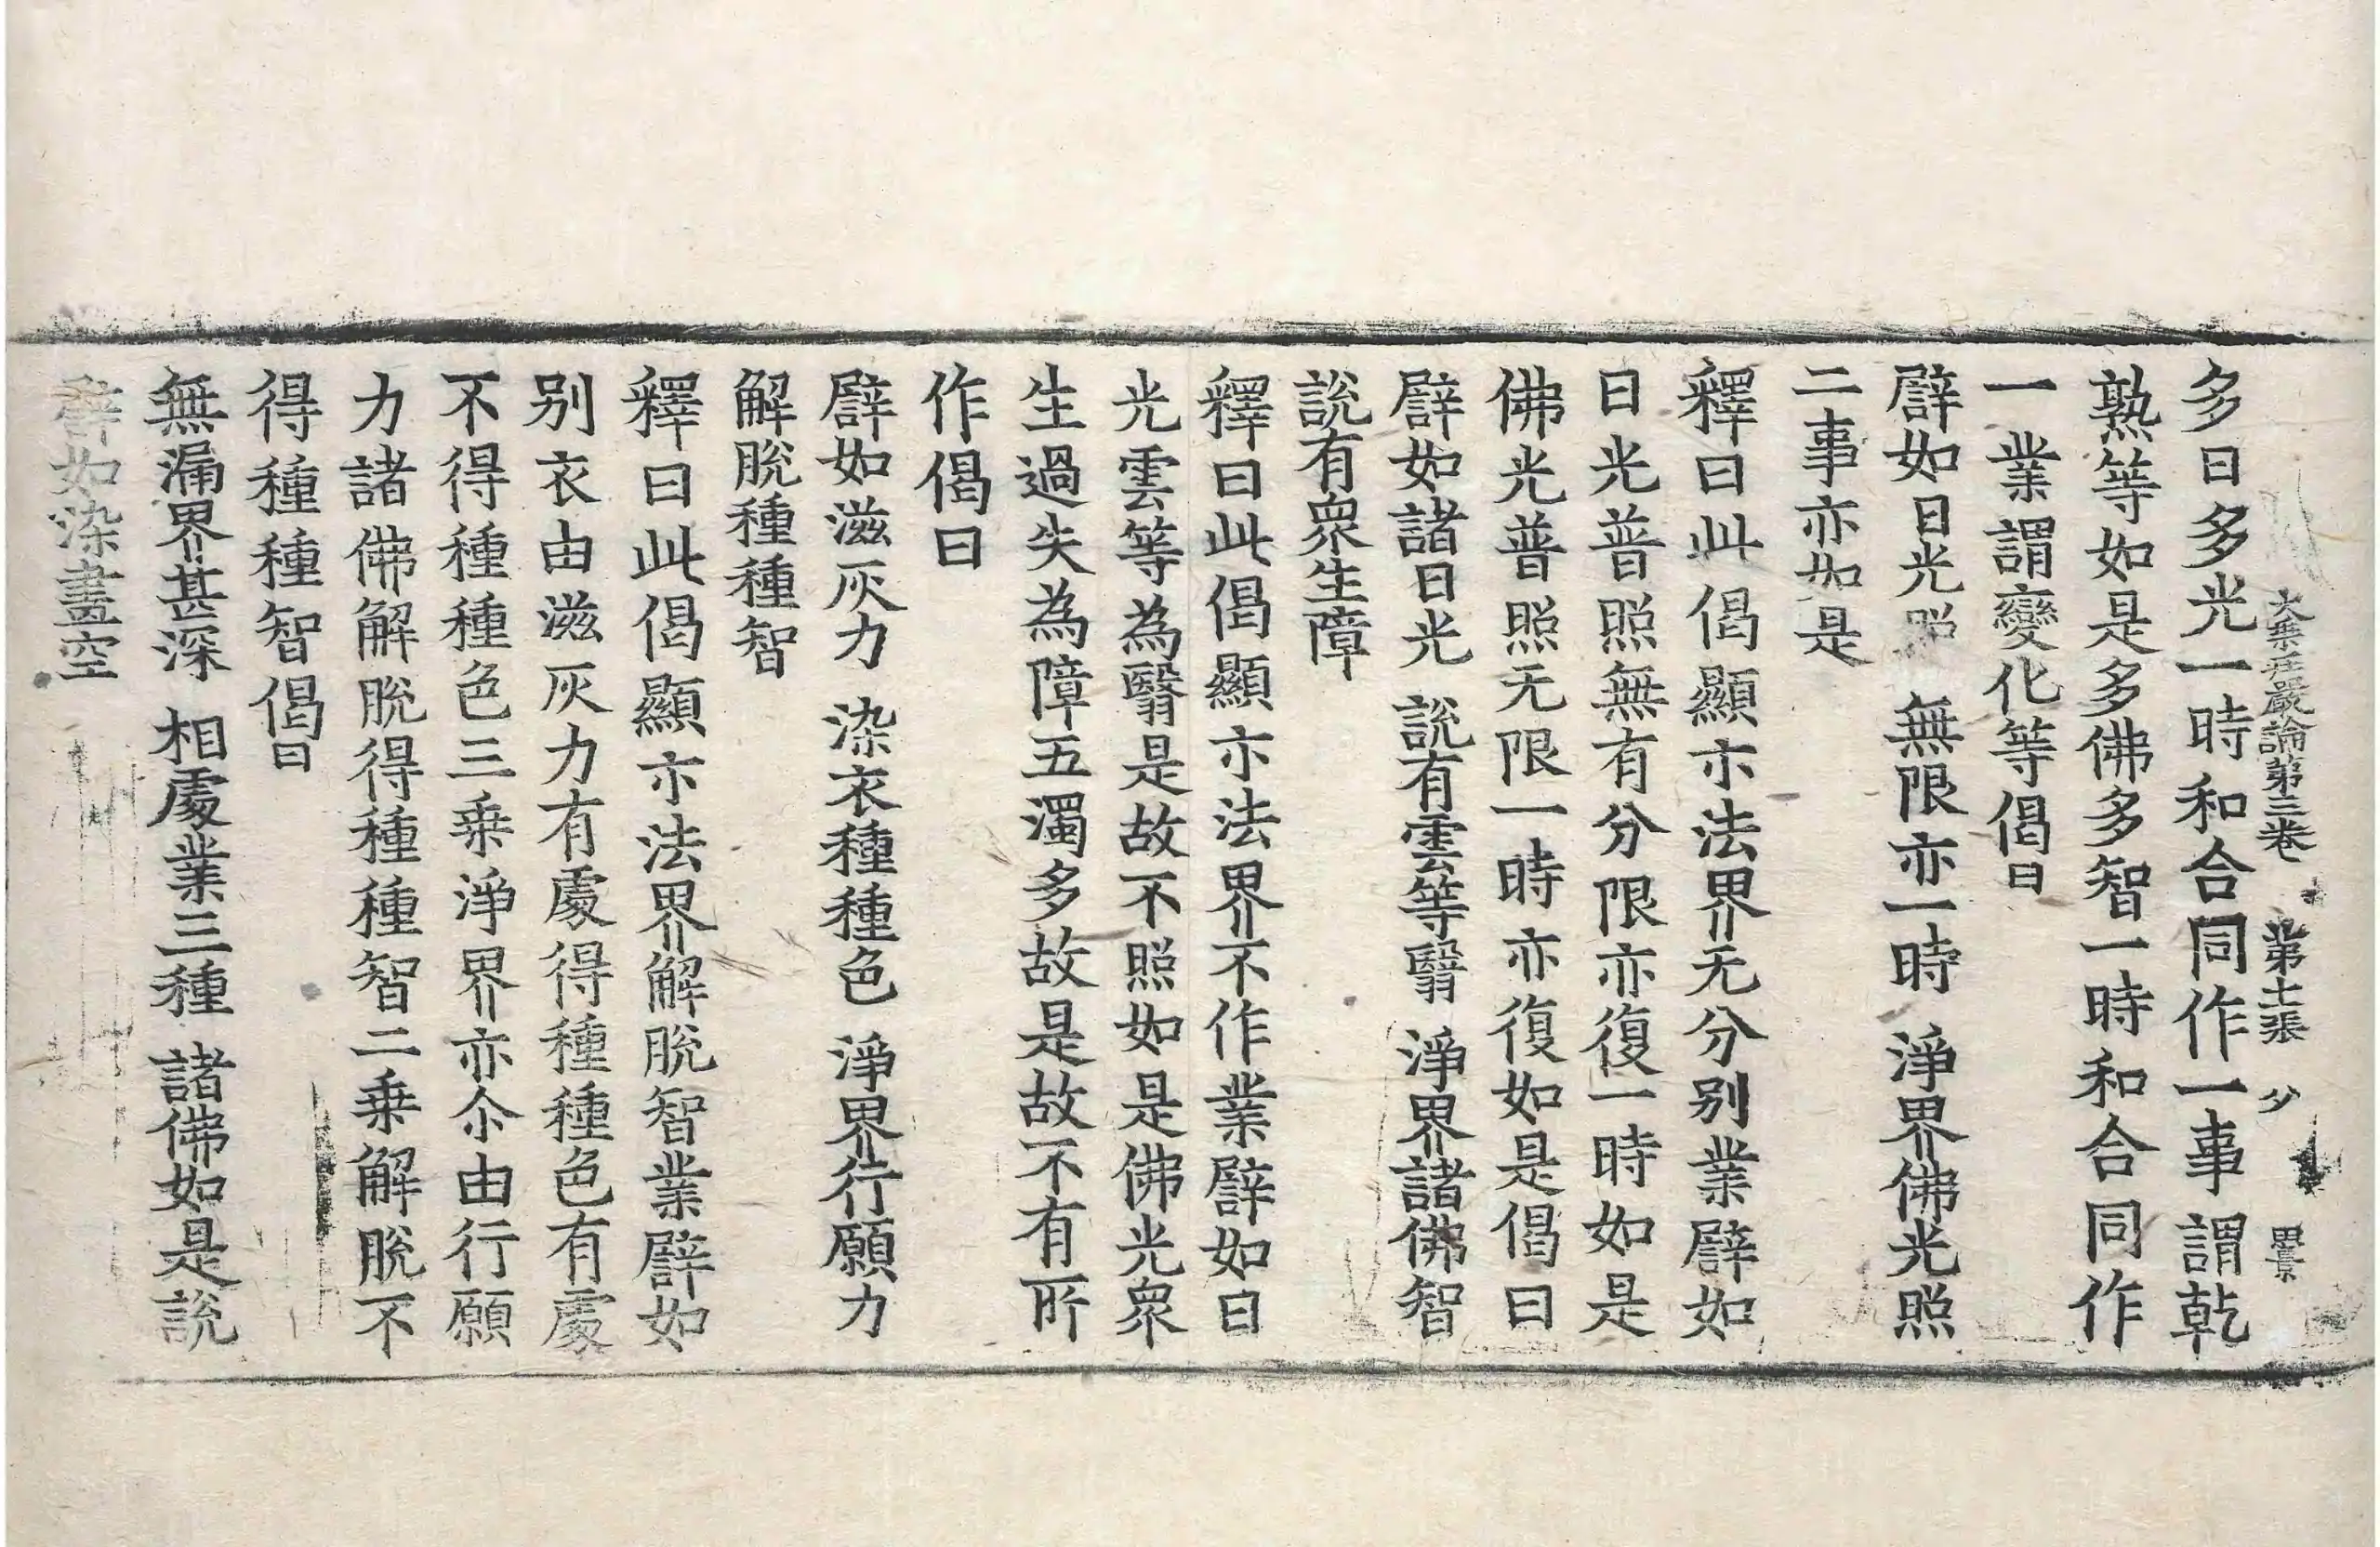 大乗莊嚴論第三卷 第十一張 少
多日多光一時和合同作一事謂乾
熟等如是多佛多智一時和合同作
一業謂變化等偈曰
譬如日光照 無限亦一時 淨界佛光照
二事亦如是
釋曰此偈顯示法界无分別業譬如
日光普照無有分限亦復一時如是
佛光普照无限一時亦復如是偈曰
譬如諸日光 說有雲等翳 淨界諸佛智
說有衆生障
釋曰此偈顯示法界不作業譬如日
光雲等為翳是故不照如是佛光衆
生過失為障五濁多故是故不有所
作偈曰
譬如滋灰力 染衣種種色 淨界行願力
解脫種種智
釋曰此偈顯示法界解脫智業譬如
別衣由滋灰力有處得種種色有處
不得種種色三乗淨界亦尒由行願
力諸佛解脫得種種智二乗解脫不
得種種智偈曰
無漏界甚深 相處業三種 諸佛如是說
譬如染畫空